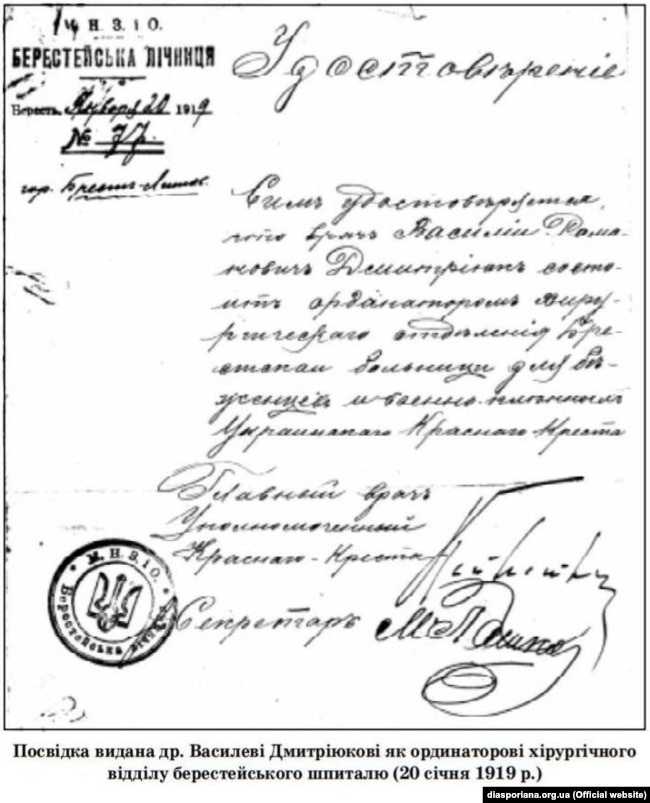 М. Н. З. і О.
БЕРЕСТЕЙСЬКА ЛІЧНИЦЯ
Берестъ, Января 20 1919
№ 77.
гор. Брестъ-Литов.
Удостовѣреніе
Симъ удостовѣряется,
что врачъ Василій Рома-
новичъ Дмитріюкъ состо-
итъ ординаторомъ хирур-
гическаго отдѣленія Бре-
стской больницы для бѣ-
женцевъ и военно-плѣнныхъ
Украинскаго Краснаго Креста
Главный врачъ
Уполномоченный
Краснаго-Креста
Секретарь
М. Н. З. і О.
Берестейська лічниця
Посвідка видана др. Василеві Дмитріюкові як ординаторові хірургічного
відділу берестейського шпиталю (20 січня 1919 р.)
diasporiana.org.ua (Official website)